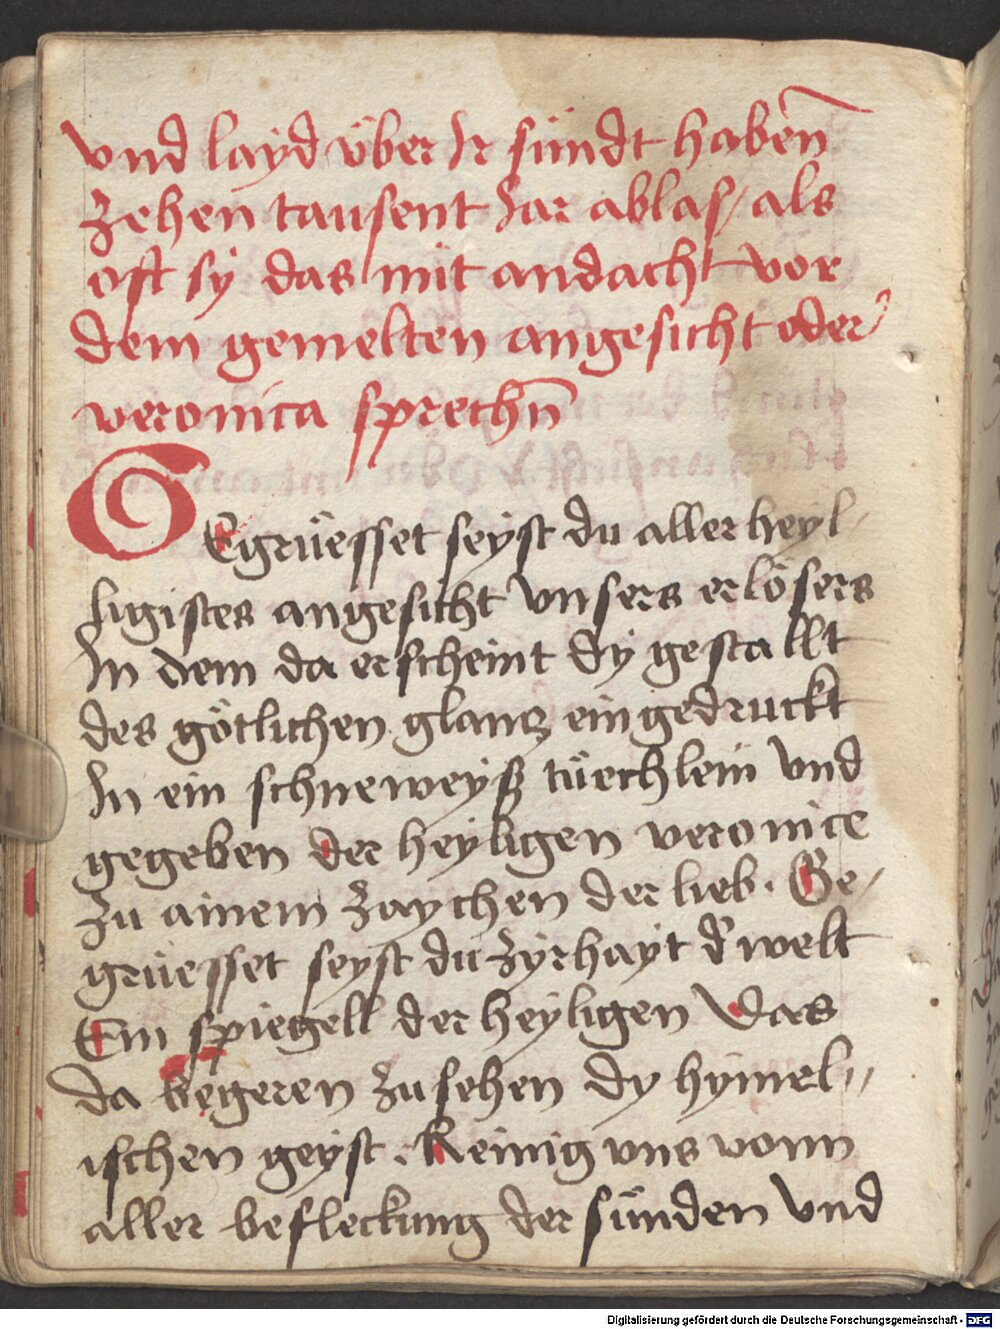 vnd layd über Ir sündt haben̄
zehen tausent Jar ablas / als
oft sy das mit andacht vor
dem gemelten angesicht oder
veronica sprechn̄
GEgrüesset seyst du aller heyl-
ligistes angesicht vnsers erlösers
In dem da erscheint dy gestallt
des götlichen glantz eingedruckt
In ein schneweyß tüechlein vnd
gegeben der heyligen veronice
zu ainem zaychen der lieb. Ge-
grüesset seyst du zyrhayt d' welt
Ein spiegell der heyligen Das
da begeren zu sehen dy hymel-
ischen geyst. Reinig vns vonn
aller befleckung der sünden vnd
Digitalisierung gefördert durch die Deutsche Forschungsgemeinschaft - DFG